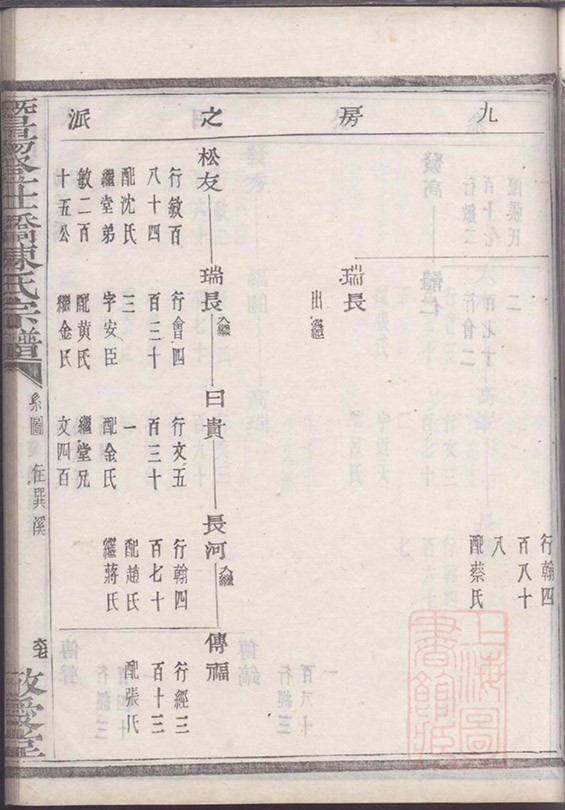 九房之派
行翰四
百八十
八
配蔡氏
瑞長
出繼
松友
行敏百
八十四
配沈氏
繼堂弟
敏二百
十五公
瑞長
入繼
行會四
百三十
三
字安臣
配黃氏
繼金氏
曰貴
行文五
百三十
一
配金氏
繼堂兄
文四百
長河
入繼
行翰四
百七十
配趙氏
繼蔣氏
傳福
行經三
百十三
配張氏
陳氏宗譜
系圖
在巽溪
敬愛堂
上海圖書館藏